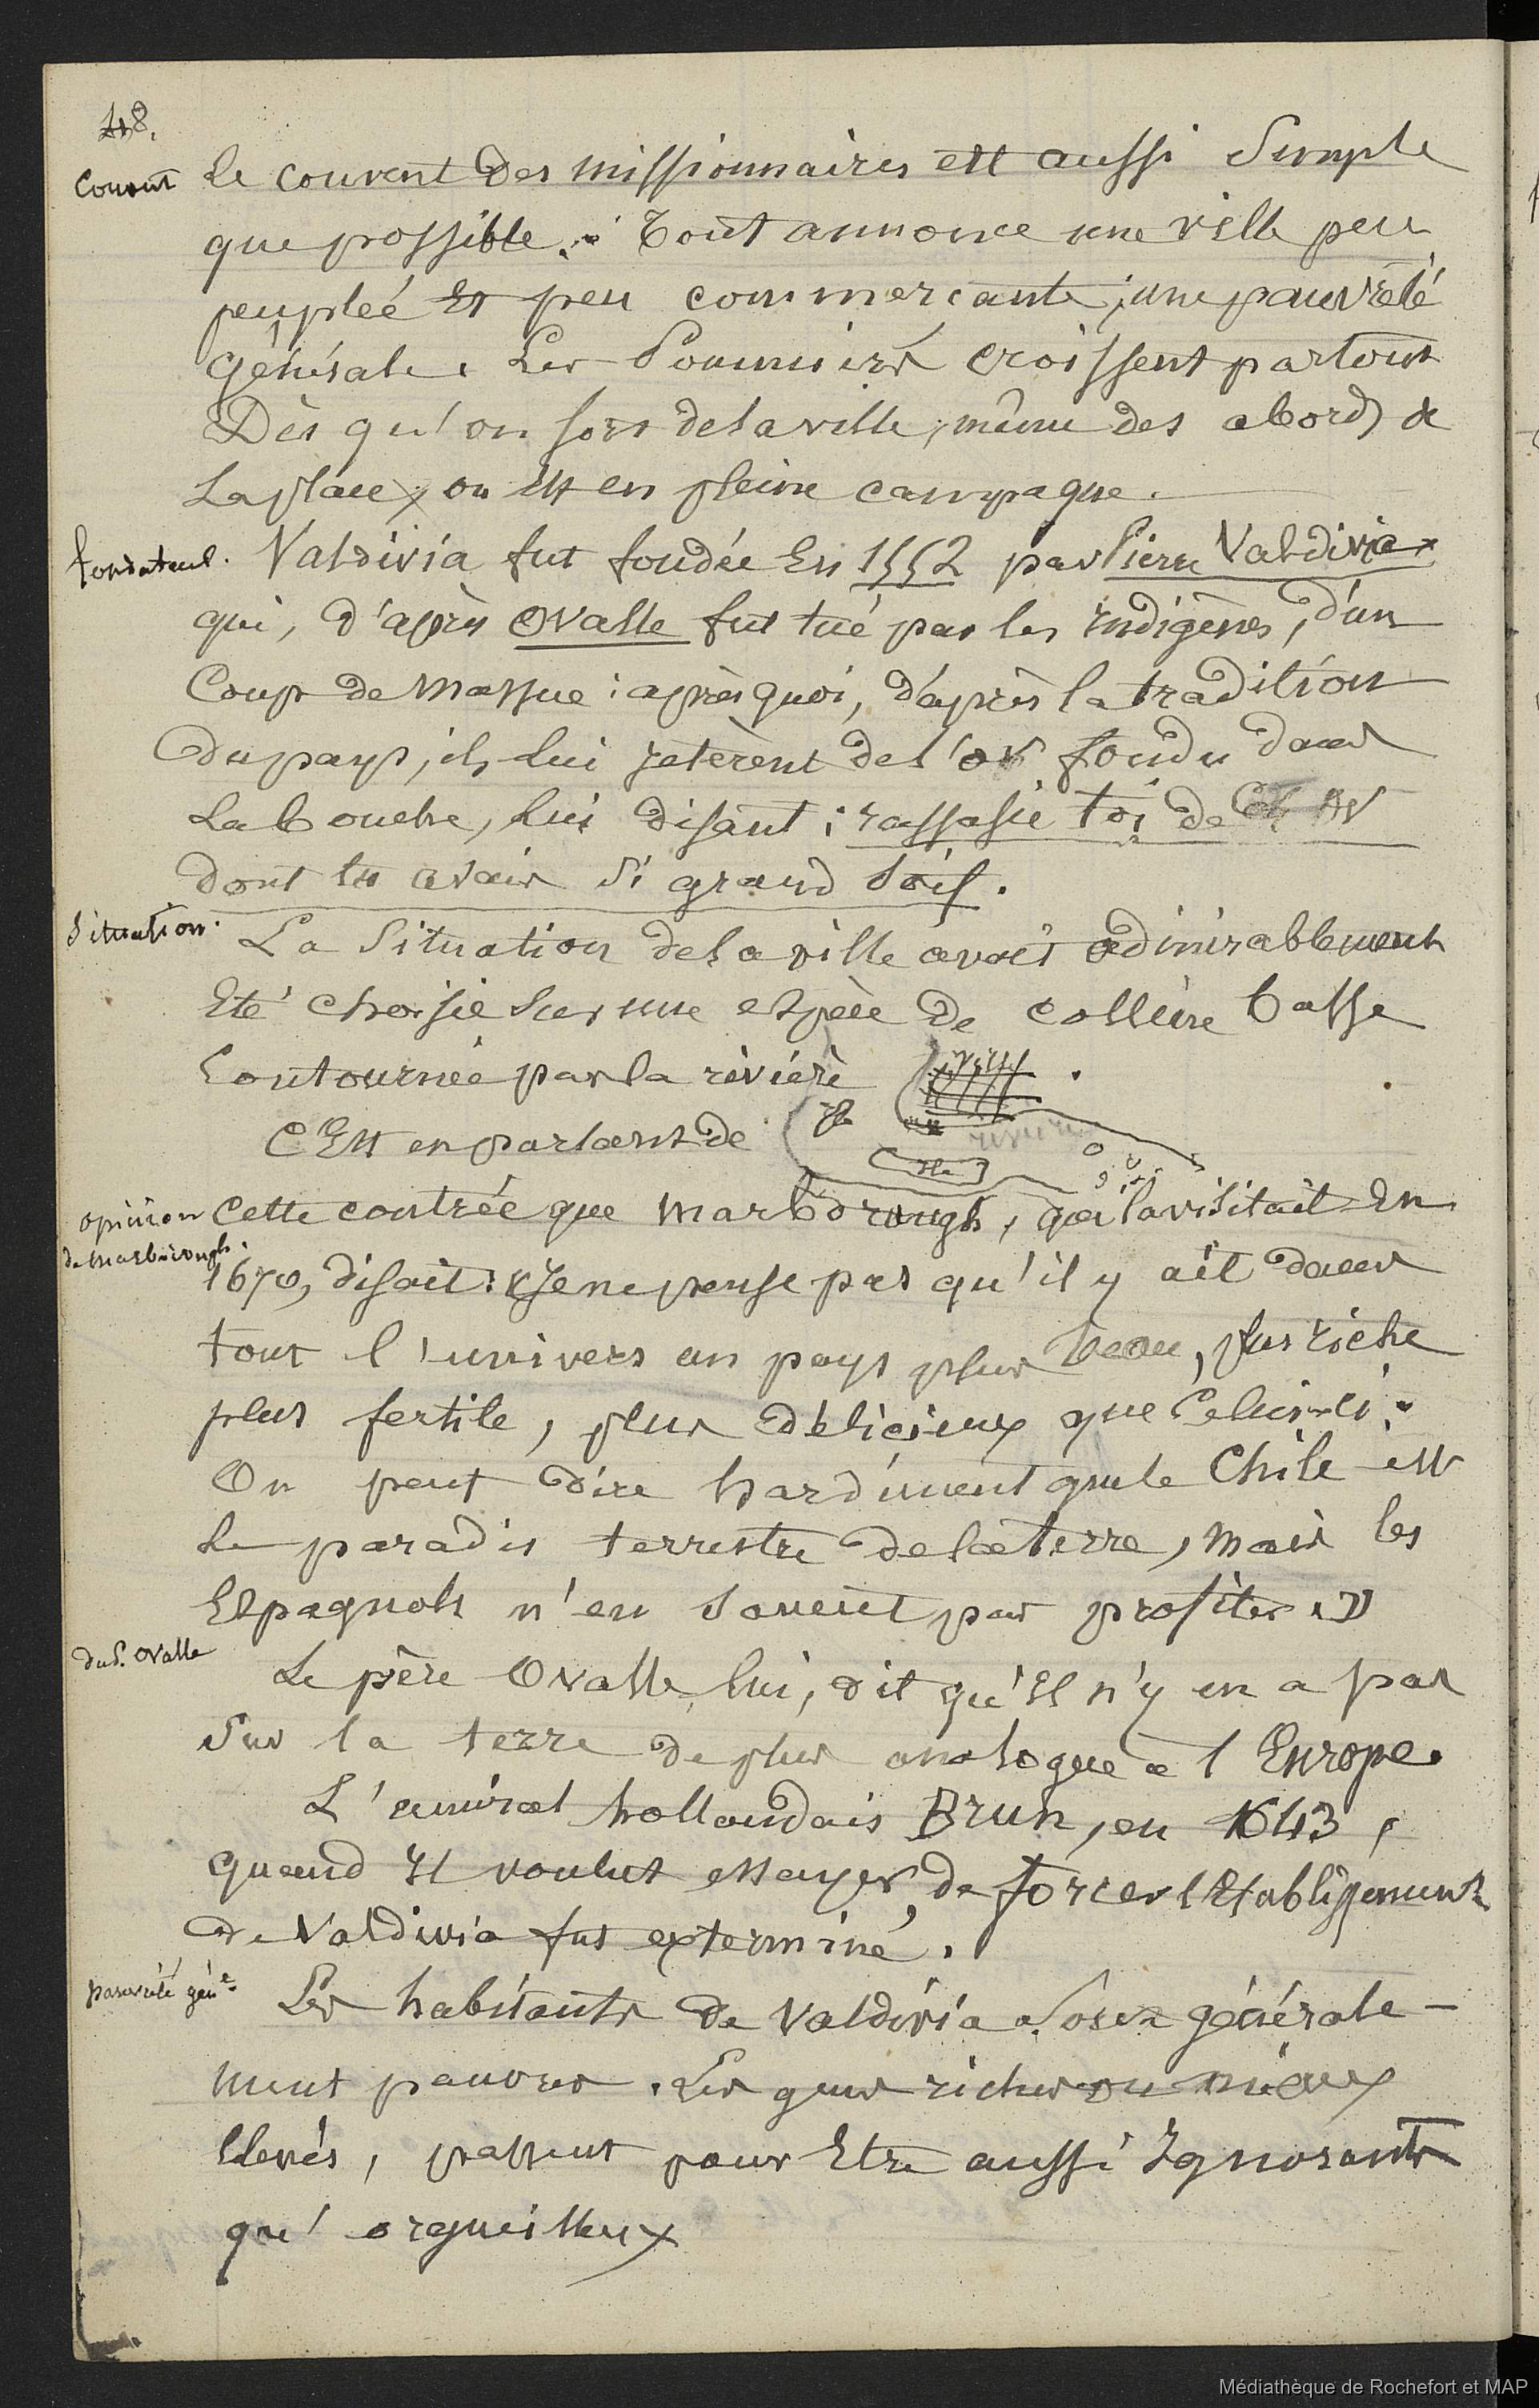 48.
Couvent
Le couvent des missionnaires est aussi simple
que possible. Tout annonce une ville peu
peupleé et peu commerçante, une pauvrété
générale. Les Pommiers croissent partout
Dès qu'on sors de la ville, même des abords de
La place, on est en pleine campagne.
fondateur.
Valdivia fut fondée En 1552 par Pierre Valdivia
qui, d'après Ovalle fut tué par les indigènes, d'un
Coup de massue : après quoi, d'après la tradition
du pays, ils lui jetèrent de l'or fondu dans
La bouche, lui disant : rassasie toi de cet or
dont tu avais si grand soif.
Situation.
La Situation de la ville avait admirablement
Eté choisie sur une espèce de colline basse
Contournée par la rivière
ville
ile
rivière
ile
C'Est en parlant de
opinion
de Marborough.
Cette contrée que Marborough, qui la visitait En
1670, disait : « Je ne pense pas qu'il y ait dans
tout l'univers un pays plus beau, plus riche
plus fertile, plus délicieux que Celui-ci.
On peut dire hardiment que le Chile est
Le paradis terrestre de la terre, mais les
Espagnols n'en savent pas profiter. »
du P. Ovalle
Le père Ovalle, lui, dit qu'Il n'y en a pas
Sur la terre de plus analogue a l'Europe.
L'amiral hollandais Brun, en 1643,
quand Il voulut essayer, de forcer l'Etablissement
de Valdivia fut exterminé.
pauvrété génle
Les habitants de Valdivia sont générale-
ment pauvres. Les gens riches ou mieux
Elevés, passent pour Etre aussi Ignorants
qu'orgueilleux
Médiathèque de Rochefort et MAP